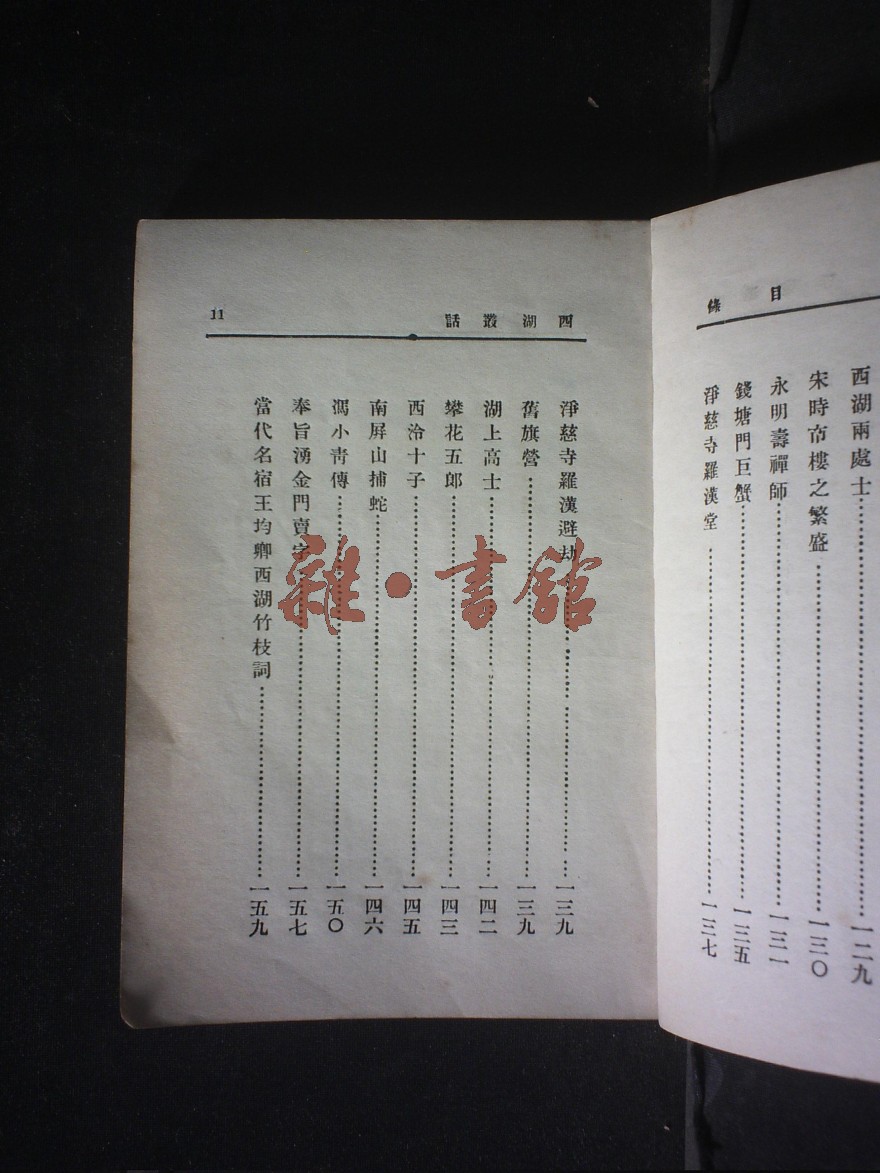 目 錄
西湖兩處士 一二九
宋時市樓之繁盛 一三〇
永明壽禪師 一三一
錢塘門巨蟹 一三五
淨慈寺羅漢堂 一三七
西湖叢話 11
淨慈寺羅漢避劫 一三九
舊旗營 一三九
湖上高士 一四二
攀花五郎 一四三
西泠十子 一四五
南屏山捕蛇 一四六
馮小靑傳 一五〇
奉旨湧金門賣字 一五七
當代名宿王均卿西湖竹枝詞 一五九
雜·書館